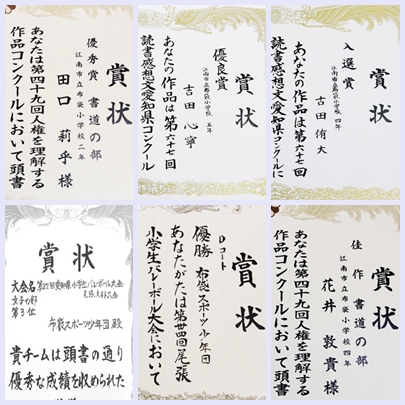 賞状
優秀賞 書道の部
江南市立布袋小学校二年
田口 莉乎 様
あなたは第四十九回人権を理解する
作品コンクールにおいて頭書
賞状
優良賞
江南市立布袋小学校 五年
吉田 心寧
あなたの作品は第六十七回
読書感想文愛知県コンクール
賞状
入選賞
江南市立布袋小学校 四年
吉田 侑大
あなたの作品は第六十七回
読書感想文愛知県コンクールに
賞状
大会名 第22回愛知県小学生バレーボール大会
尾張支部大会
女子の部
第3位
布袋スポーツ少年団 殿
貴チームは頭書の通り
優秀な成績を収められた
賞状
Dコート
優勝 布袋スポーツ少年団
あなたがたは第卅四回尾張
小学生バレーボール大会において
賞状
佳作 書道の部
江南市立布袋小学校四年
花井 敦貴 様
あなたは第四十九回人権を理解する
作品コンクールにおいて頭書